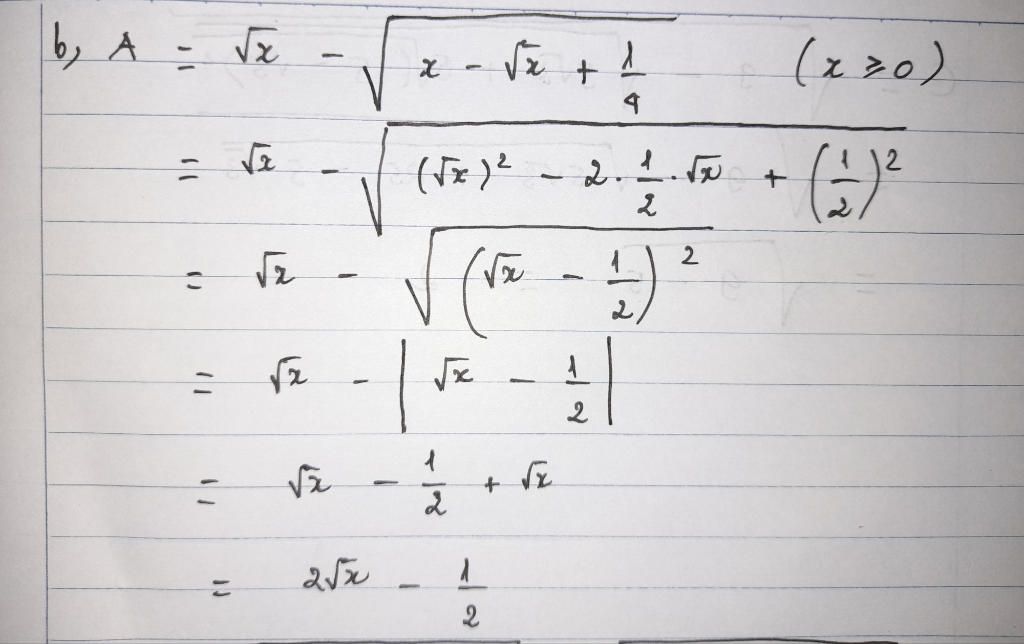 b, A = √x - √(x - √x + 1/4) (x ⩾ 0)
= √x - √((√x)² - 2 · 1/2 · √x + (1/2)²)
= √x - √((√x - 1/2)²)
= √x - |√x - 1/2|
= √x - 1/2 + √x
= 2√x - 1/2